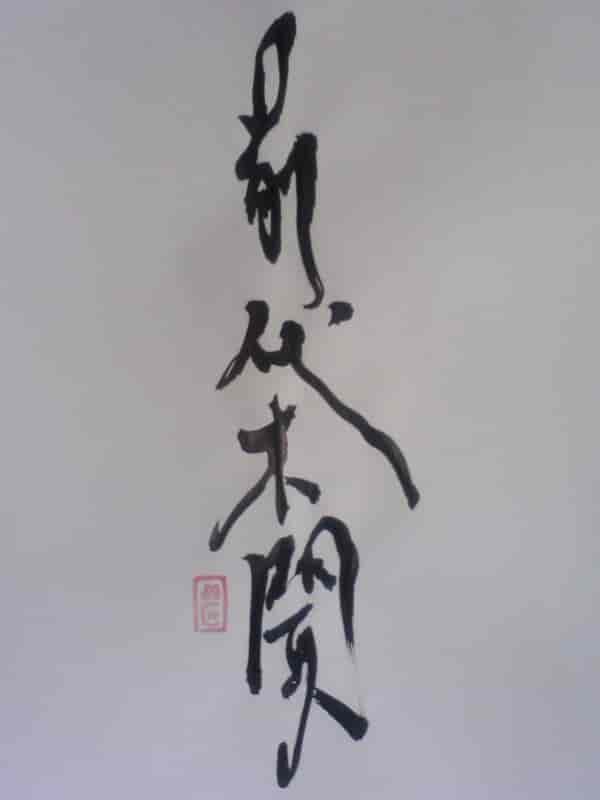 前代未聞